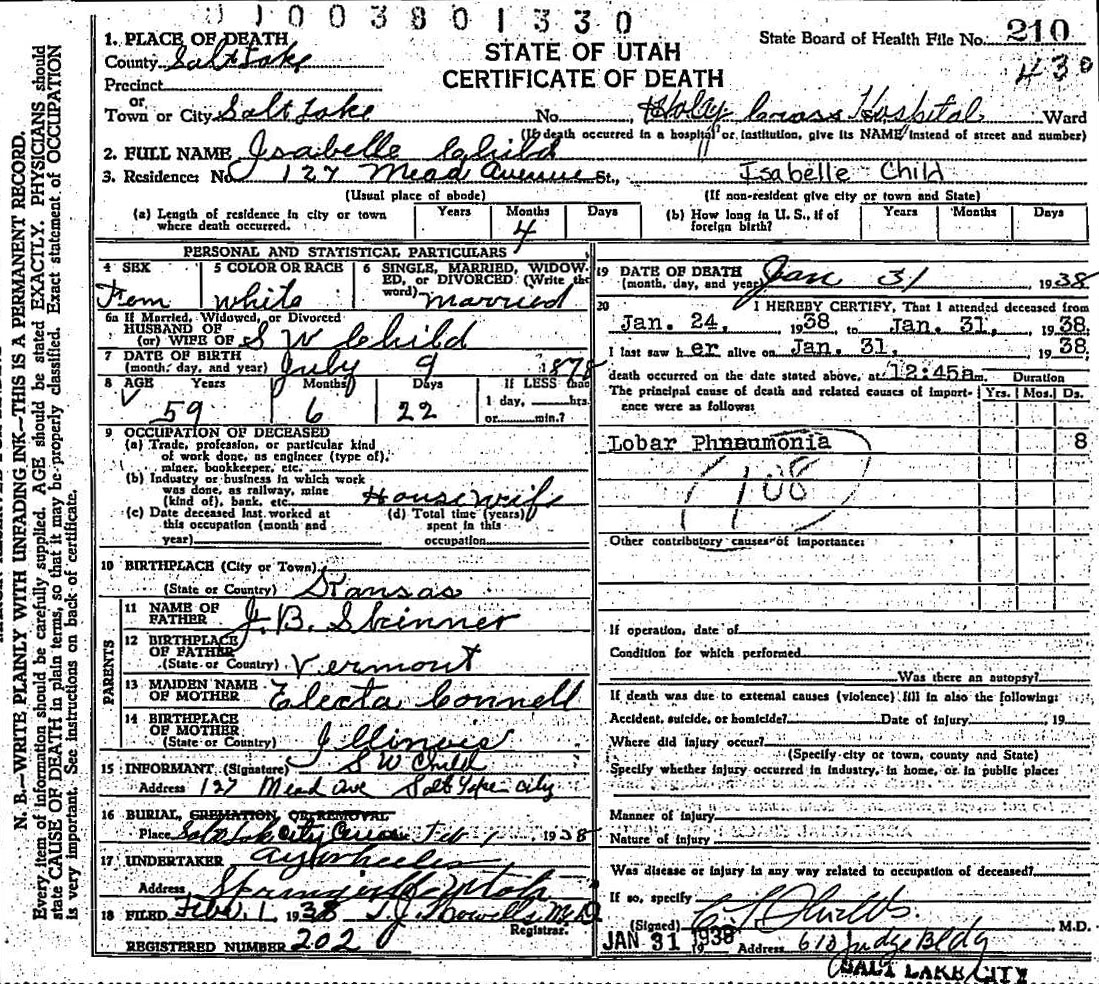 0 0 0 3 8 0 1 3 3 0
1. PLACE OF DEATH
County Salt Lake
Precinct
or
Town or City Salt Lake No. Holy Cross Hospital Ward
(If death occurred in a hospital or institution, give its NAME instead of street and number)
STATE OF UTAH
CERTIFICATE OF DEATH
State Board of Health File No. 210
430
2. FULL NAME Isabelle Child
3. Residence: No. 127 Mead Avenue St., Isabelle Child
(Usual place of abode) (If non-resident give city or town and State)
(a) Length of residence in city or town where death occurred. Years Months 4 Days
(b) How long in U. S., if of foreign birth? Years Months Days
PERSONAL AND STATISTICAL PARTICULARS
4 SEX Fem
5 COLOR OR RACE white
6 SINGLE, MARRIED, WIDOW-
ED, or DIVORCED (Write the
word) married
6a If Married, Widowed, or Divorced
HUSBAND OF
(or) WIFE OF S W Child
7 DATE OF BIRTH
(month, day, and year) July 9 1878
8 AGE Years Months Days If LESS than
59 6 22 1 day, hrs.
or min.?
9 OCCUPATION OF DECEASED
(a) Trade, profession, or particular kind
of work done, as engineer (type of),
miner, bookkeeper, etc.
(b) Industry or business in which work
was done, as railway, mine
(kind of), bank, etc. Housewife
(c) Date deceased last worked at
this occupation (month and
year)
(d) Total time (years)
spent in this
occupation
10 BIRTHPLACE (City or Town)
(State or Country) Kansas
PARENTS
11 NAME OF
FATHER J. B. Skinner
12 BIRTHPLACE
OF FATHER
(State or Country) Vermont
13 MAIDEN NAME
OF MOTHER Electa Connell
14 BIRTHPLACE
OF MOTHER
(State or Country) Illinois
15 INFORMANT (Signature) S W Child
Address 127 Mead Ave Salt Lake City
16 BURIAL, CREMATION, OR REMOVAL
Place Salt Lake City Feb 1, 1938
17 UNDERTAKER A Y Wheeler
Address Springville Utah
18 FILED Feb. 1, 1938 T. J. Howells, M.D.
Registrar.
REGISTERED NUMBER 202
19 DATE OF DEATH
(month, day, and year) Jan 31 1938
20 I HEREBY CERTIFY, That I attended deceased from
Jan. 24, 1938, to Jan. 31, 1938
I last saw her alive on Jan. 31, 1938
death occurred on the date stated above, at 12:45a m. Duration
The principal cause of death and related causes of import-
ance were as follows: Yrs. Mos. Ds.
Lobar Phneumonia 8
(108)
Other contributory causes of importance:
If operation, date of
Condition for which performed
Was there an autopsy?
If death was due to external causes (violence) fill in also the following:
Accident, suicide, or homicide? Date of injury 19
Where did injury occur?
(Specify city or town, county and State)
Specify whether injury occurred in industry, in home, or in public place:
Manner of injury
Nature of injury
Was disease or injury in any way related to occupation of deceased?
If so, specify
(Signed) M.D.
JAN 31 1938 Address 610 Judge Bldg
SALT LAKE CITY
N. B.—WRITE PLAINLY WITH UNFADING INK—THIS IS A PERMANENT RECORD.
Every item of information should be carefully supplied. AGE should be stated EXACTLY. PHYSICIANS should
state CAUSE OF DEATH in plain terms, so that it may be properly classified. Exact statement of OCCUPATION
is very important. See instructions on back of certificate.